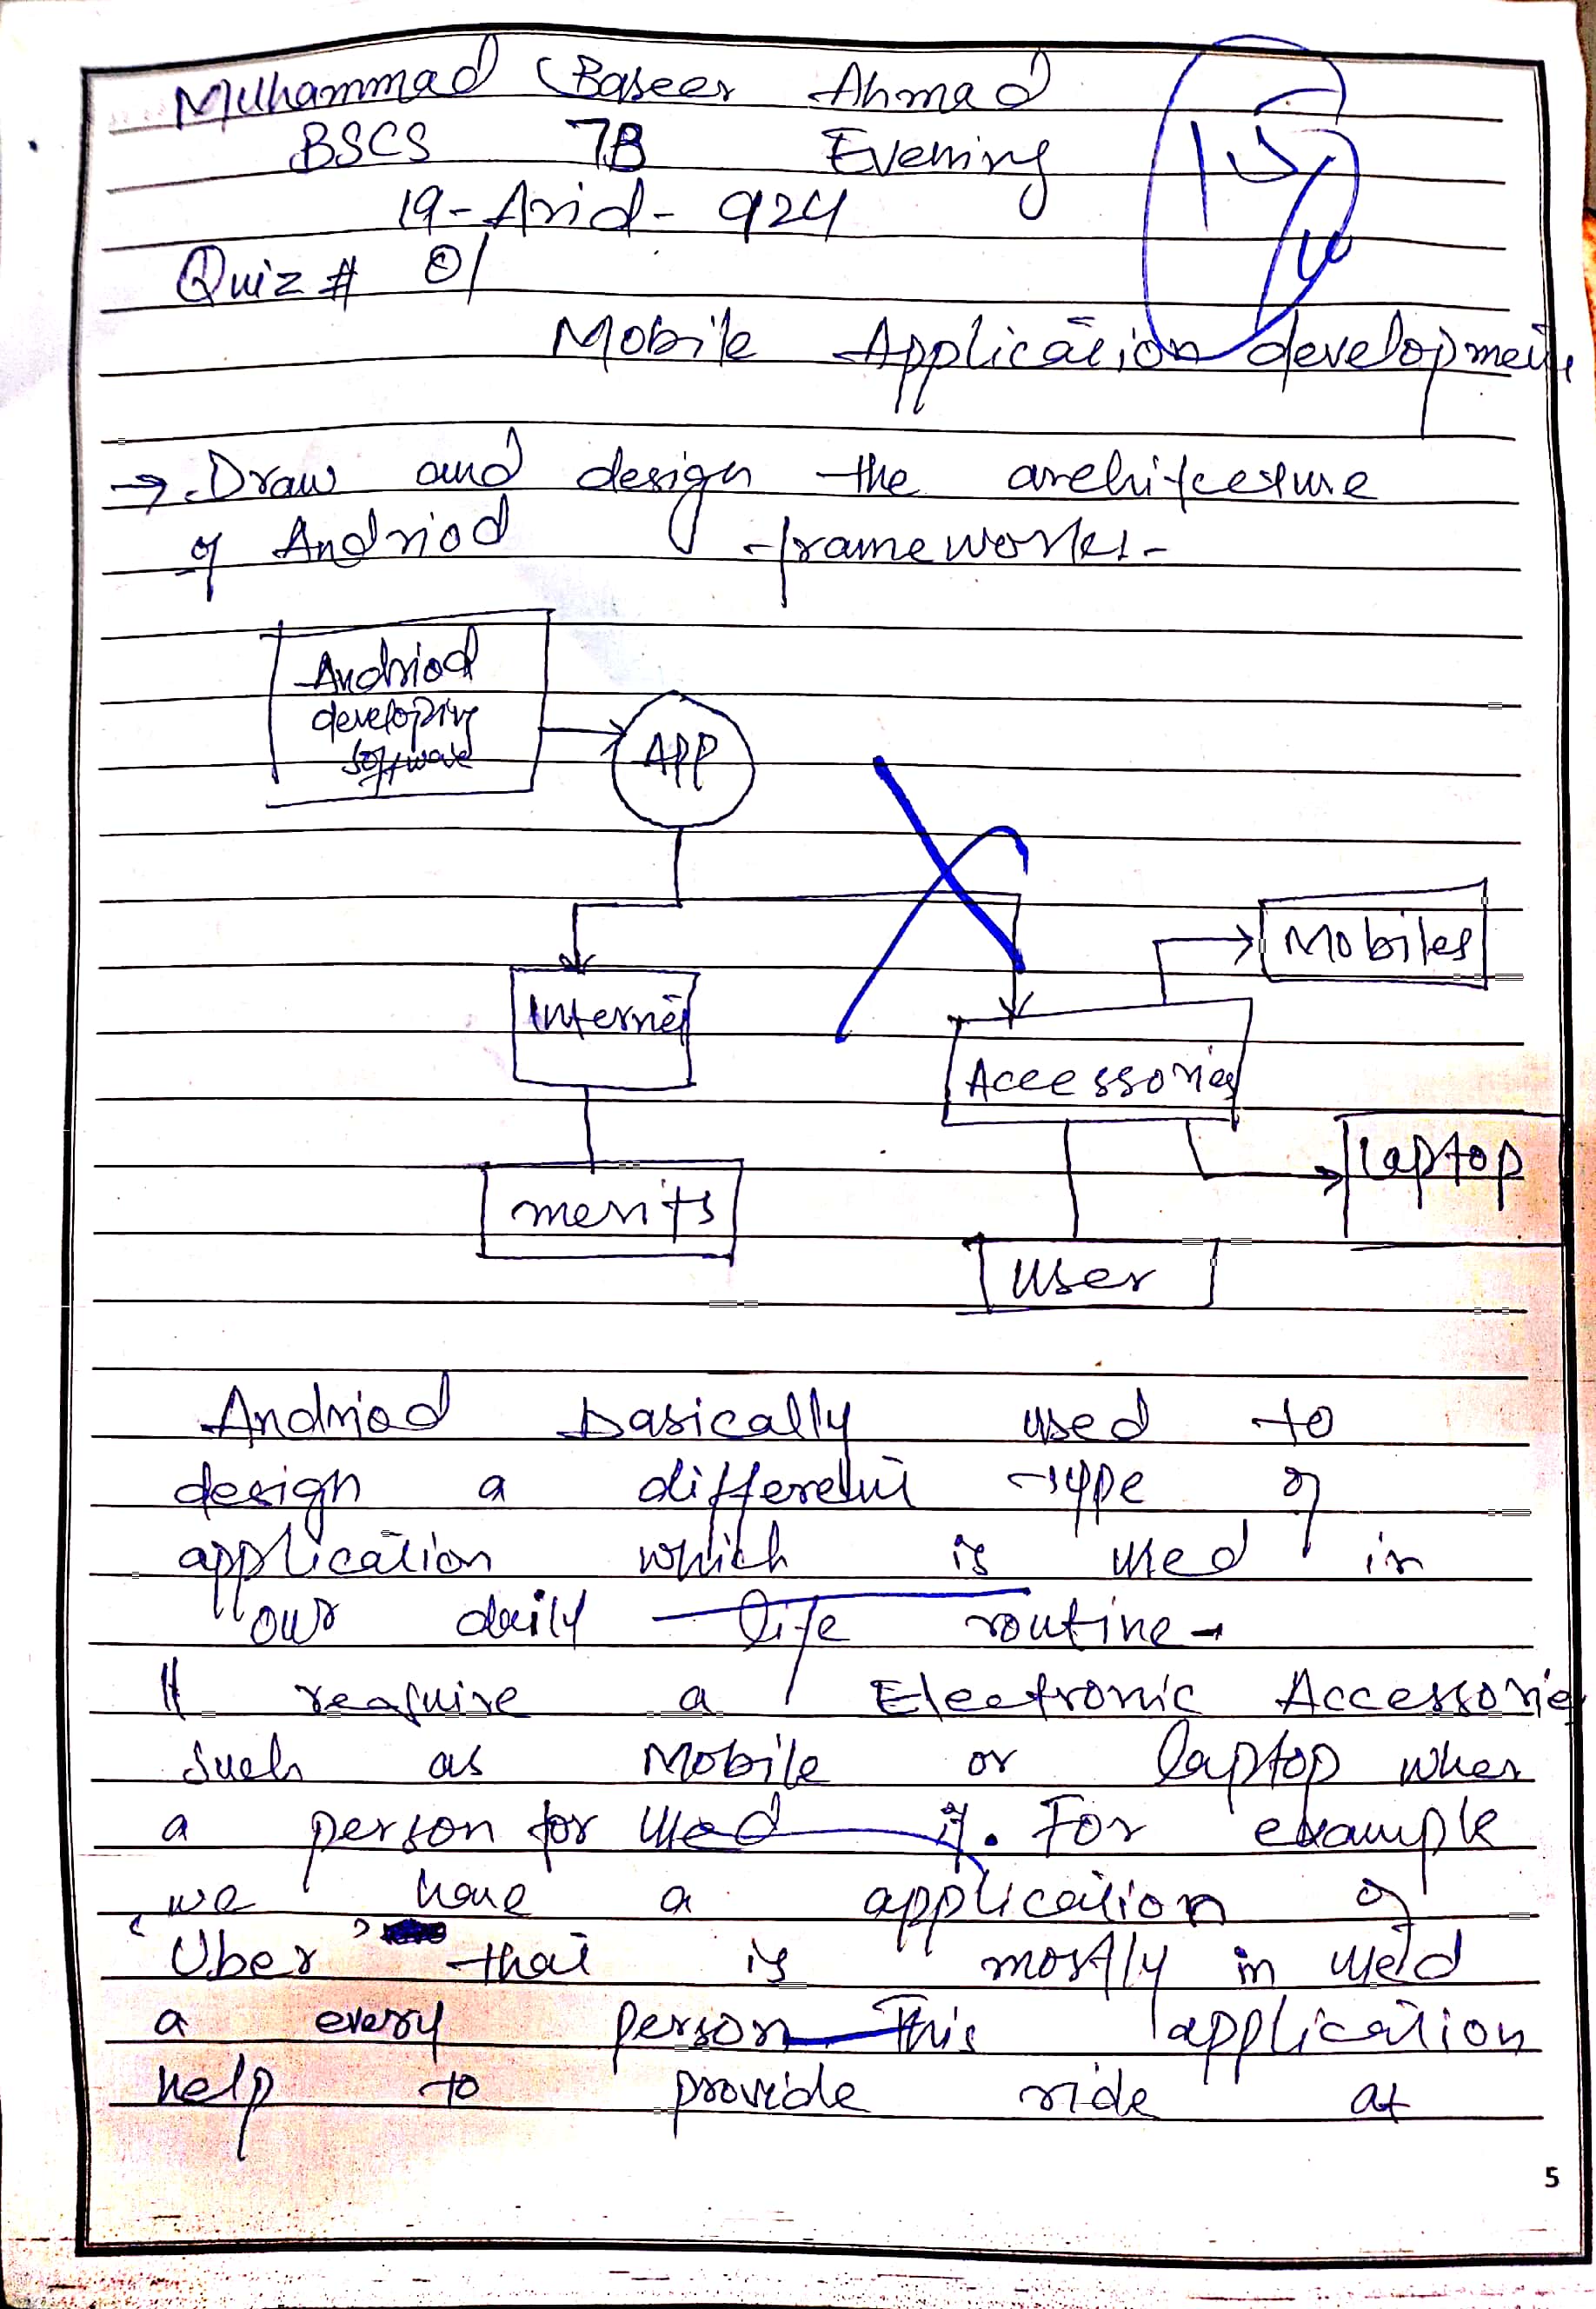 Muhammad Baseer Ahmad
BSCS 7B Evening
19-Arid-924
Quiz # 01
Mobile Application development
→ Draw and design the architecture
of Andriod frameworks-
Andriod
developing
software
APP
Mobiles
Internet
Accessories
laptop
merits
User
Andriod basically used to
design a different type of
application which is used in
our daily life routine-
It require a Electronic Accessories
such as Mobile or laptop when
a person for used it. For example
we have a application of
"Uber" that is mostly in used
a every person This application
help to provide ride at
5